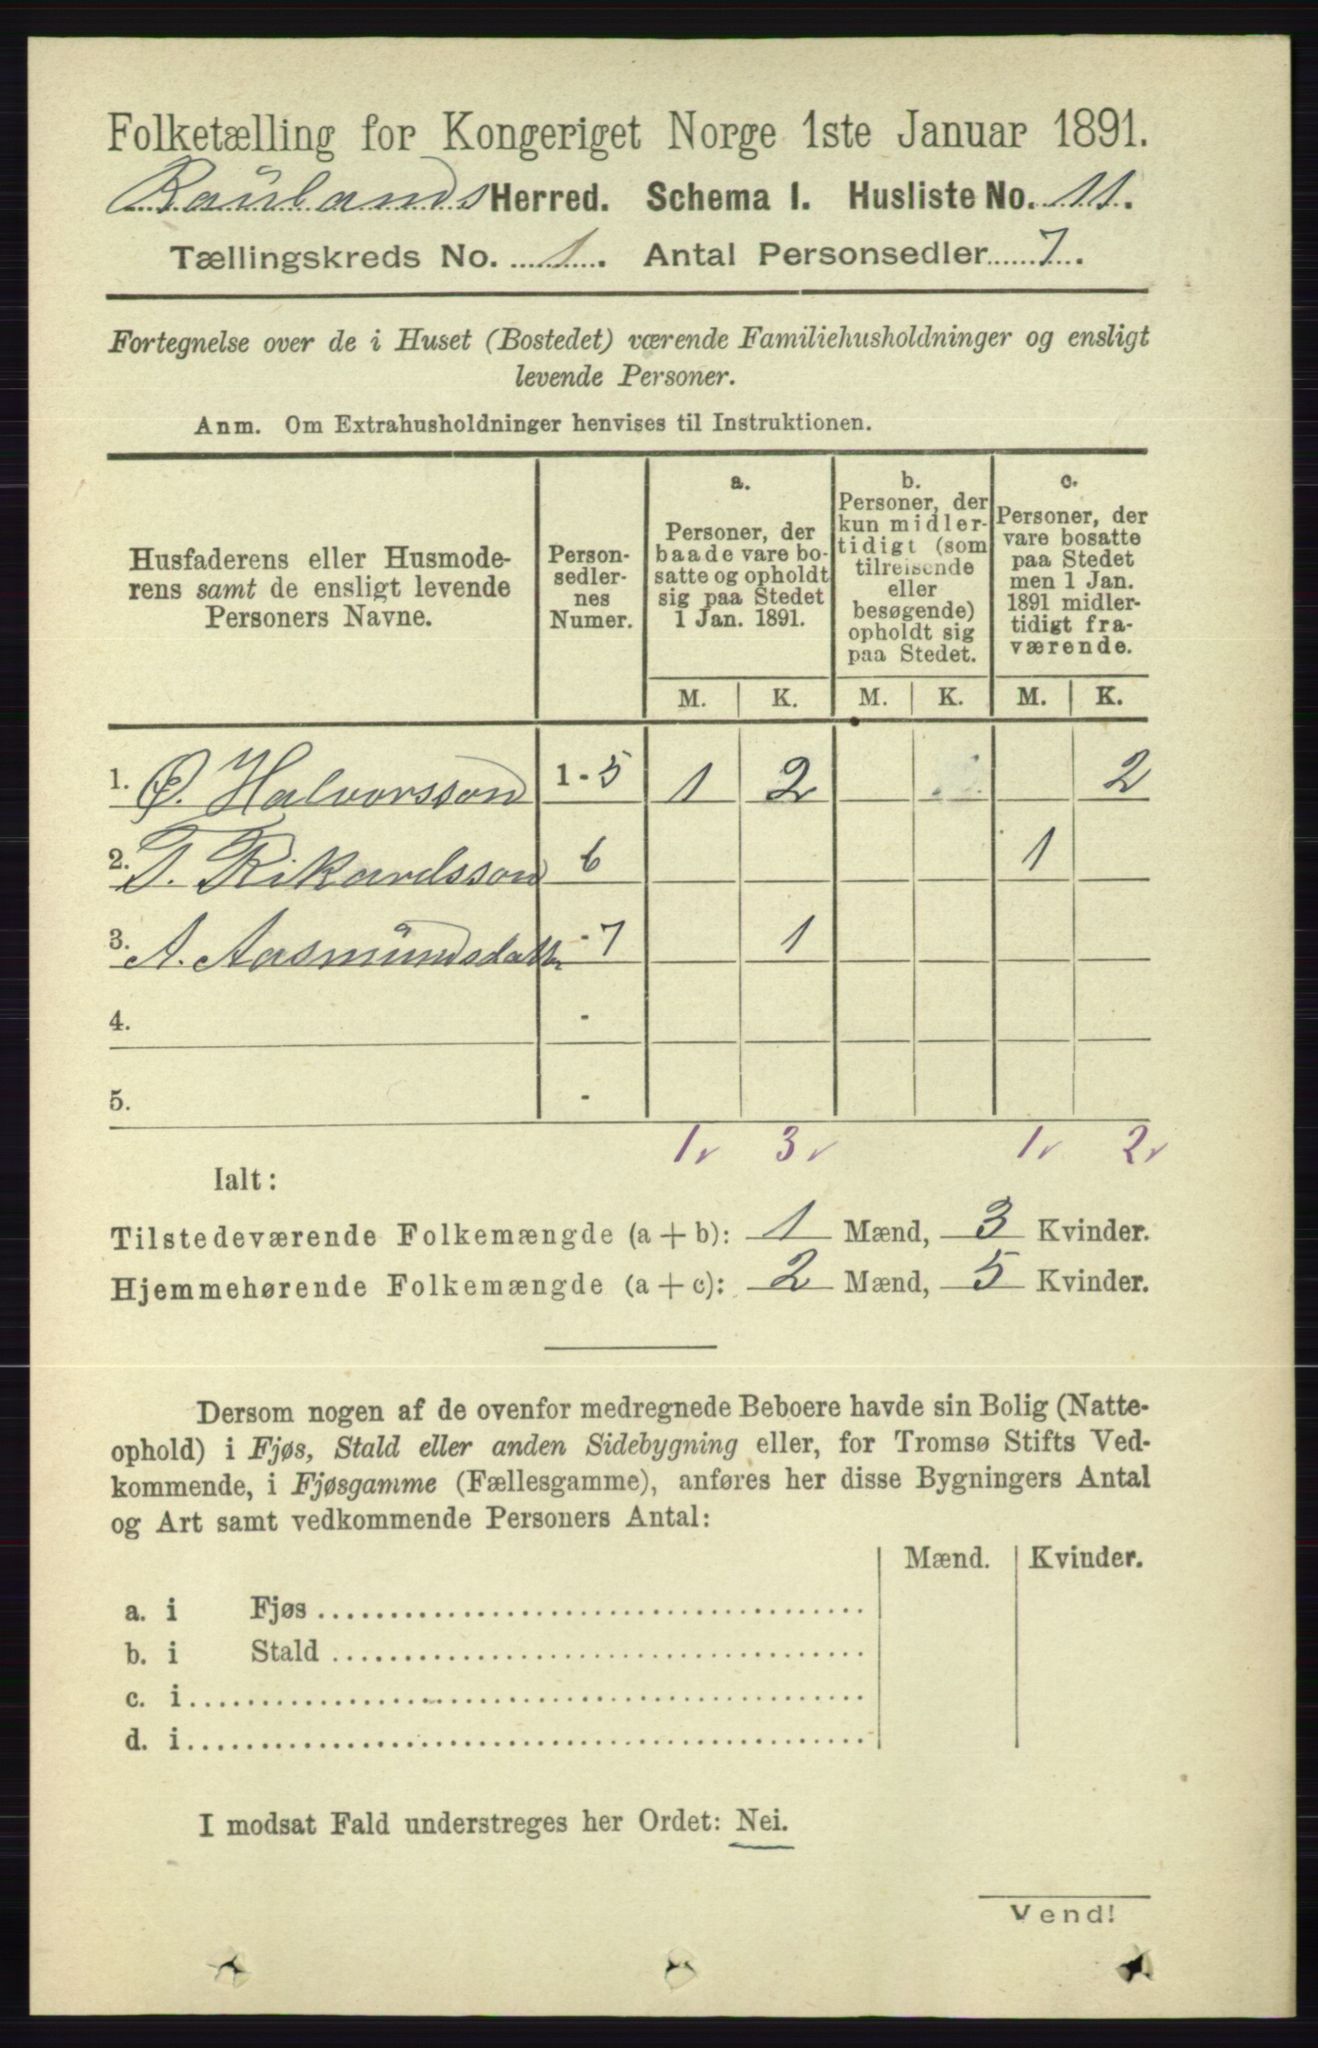 Folketælling for Kongeriget Norge 1ste Januar 1891.
Raulands Herred. Schema I. Husliste No. 11.
Tællingskreds No. 1. Antal Personsedler 7.
Fortegnelse over de i Huset (Bostedet) værende Familiehusholdninger og ensligt
levende Personer.
Anm. Om Extrahusholdninger henvises til Instruktionen.
Husfaderens eller Husmode-
rens samt de ensligt levende
Personers Navne.
Person-
sedler-
nes
Numer.
a.
Personer, der
baade vare bo-
satte og opholdt
sig paa Stedet
1 Jan. 1891.
b.
Personer, der
kun midler-
tidigt (som
tilreisende
eller
besøgende)
opholdt sig
paa Stedet.
c.
Personer, der
vare bosatte
paa Stedet
men 1 Jan.
1891 midler-
tidigt fra-
værende.
M. K. M. K. M. K.
1. Ø. Halvorsson 1 - 5 1 2 2
2. T. Rikardsson 6 1
3. A. Aasmundsdatter - 7 1
4. -
5. -
1 3 1 2
Ialt:
Tilstedeværende Folkemængde (a + b): 1 Mænd, 3 Kvinder.
Hjemmehørende Folkemængde (a + c): 2 Mænd, 5 Kvinder.
Dersom nogen af de ovenfor medregnede Beboere havde sin Bolig (Natte-
ophold) i Fjøs, Stald eller anden Sidebygning eller, for Tromsø Stifts Ved-
kommende, i Fjøsgamme (Fællesgamme), anføres her disse Bygningers Antal
og Art samt vedkommende Personers Antal:
Mænd. Kvinder.
a. i Fjøs
b. i Stald
c. i
d. i
I modsat Fald understreges her Ordet: Nei.
Vend!